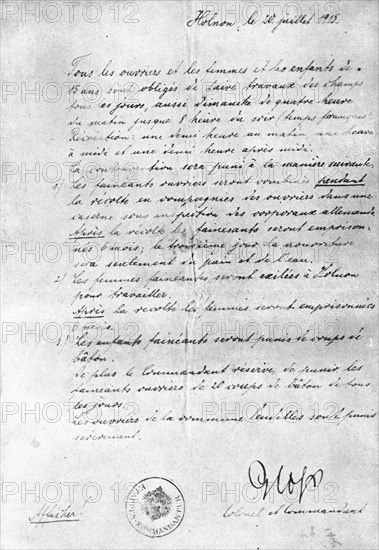 Holnon, le 20. juillet 1915.
Tous les ouvriers et les femmes et les enfants de
15 ans sont obligés de faire travaux des champs
tous les jours, aussi dimanche de quatre heure
du matin jusque 8 heure de soir, temps français.
Récréation: une demi heure au matin, une heure
à midi et une demi heure après midi.
La contravention sera puni à la manière suivante.
1) Les fainéants ouvriers seront combinés pendant
la récolte en compagnies des ouvriers dans une
caserne sous inspection des corporaux allemands.
Après la récolte les fainéants seront emprison-
nés 6 mois; le troisième jour la nourriture
sera seulement du pain et de l'eau.
2) Les femmes fainéantes seront exilées à Holnon
pour travailler.
Après la récolte les femmes seront emprisonnées
6 mois.
3) Les enfants fainéants seront punis de coups de
bâton.
De plus le Commandant réserve de punir les
fainéants ouvriers de 20 coups de bâton de tous
les jours.
Les ouvriers de la commune Vendelles sont punis
sévèrement.
Afficher!
Colonel et Commandant